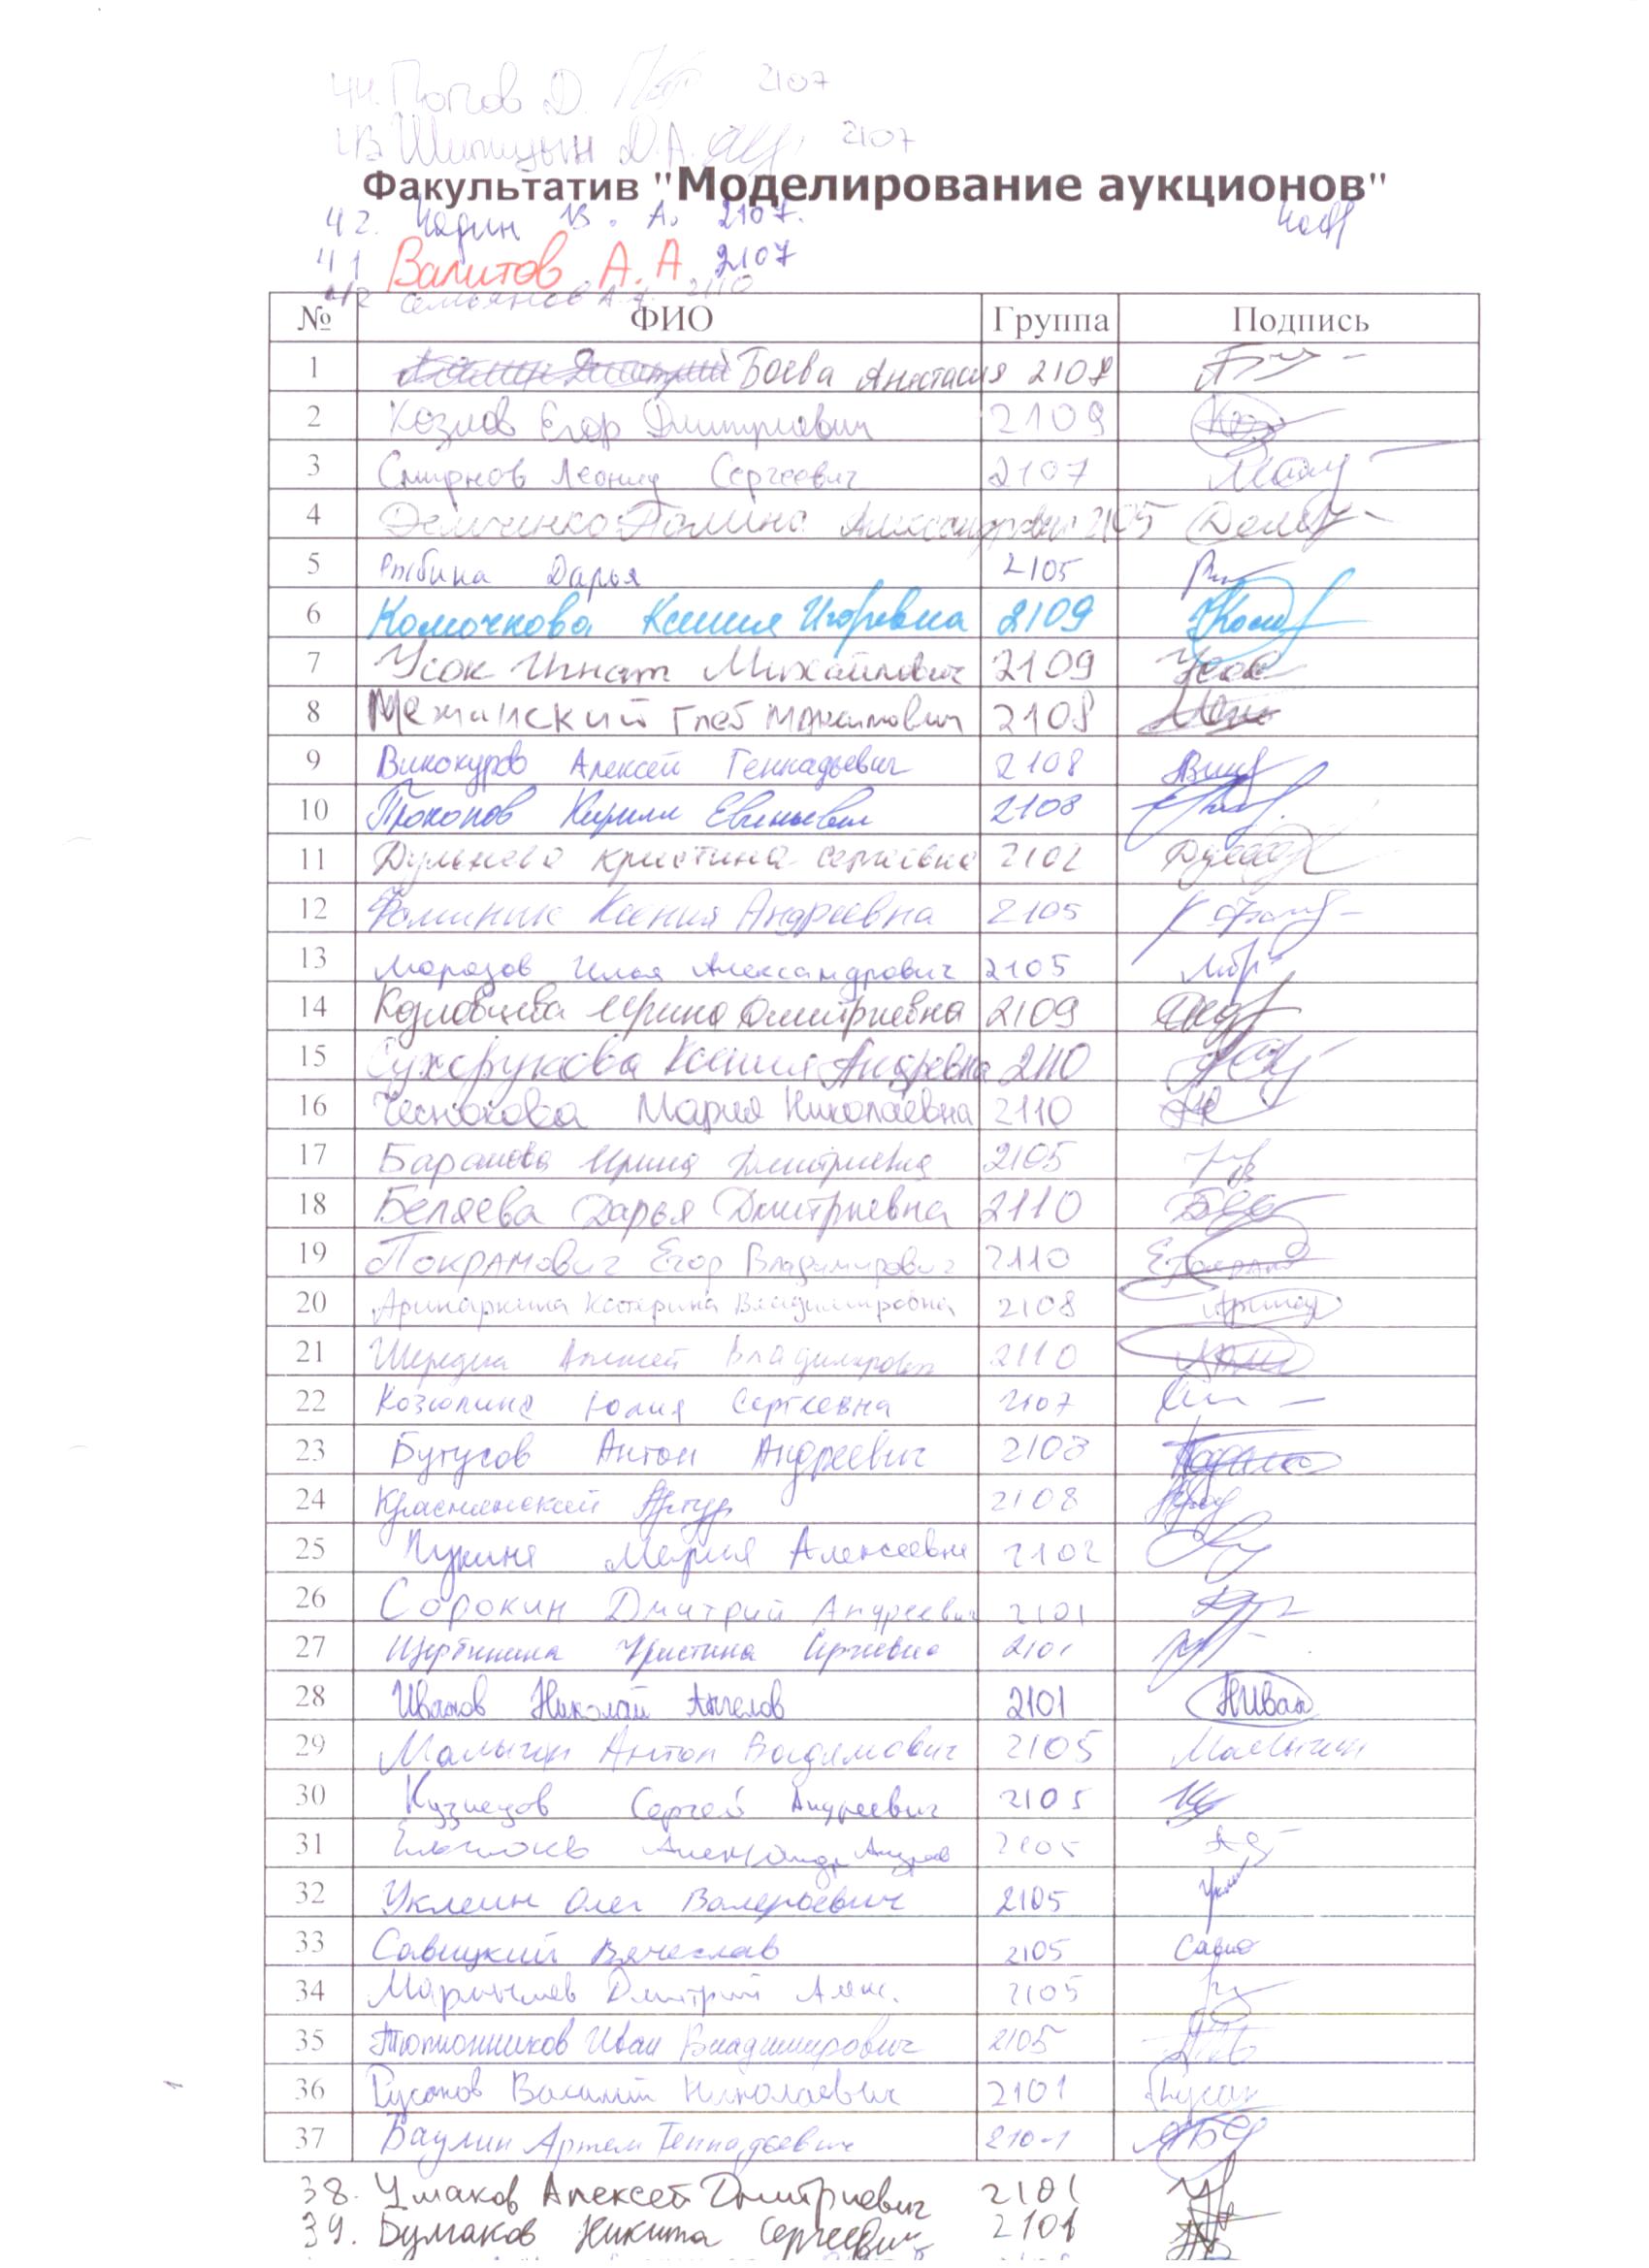 44. Попов Д. 2107
43 Шипицын Д.А. 2107
Факультатив "Моделирование аукционов"
42. В. А. 2107.
41 Валитов А. А 2107
А. А. 2110
№ ФИО Группа Подпись
1 Боева Анастасия 2108
2 Козлов Егор Дмитриевич 2109
3 Смирнов Леонид Сергеевич 2107
4 Демченко Полина Александровна 2105
5 Рыбина Дарья 2105
6 Комочкова Ксения Игоревна 2109
7 Усок Игнат Михайлович 2109
8 Глеб Максимович 2108
9 Винокуров Алексей Геннадьевич 2108
10 Прокопов Кирилл Евгеньевич 2108
11 Дульнева Кристина Сергеевна 2102
12 Фоминих Ксения Андреевна 2105
13 Морозов Илья Александрович 2105
14 Козловцева Ирина Дмитриевна 2109
15 Сухорукова Ксения Андреевна 2110
16 Чеснокова Мария Николаевна 2110
17 Баранова Ирина Дмитриевна 2105
18 Беляева Дарья Дмитриевна 2110
19 Покрамович Егор Владимирович 2110
20 Катерина Владимировна 2108
21 Алексей Владимирович 2110
22 Козюлина Юлия Сергеевна 2107
23 Бутусов Антон Андреевич 2108
24 Краснянский Артур 2108
25 Мария Алексеевна 2102
26 Сорокин Дмитрий Андреевич 2101
27 Щербинина Кристина Сергеевна 2101
28 Иванов Николай Ангелов 2101 НИван
29 Малыгин Антон Вадимович 2105 Малыгин
30 Кузнецов Сергей Андреевич 2105
31 Александр 2105
32 Уклеин Олег Валерьевич 2105
33 Савицкий Вячеслав 2105
34 Дмитрий Алекс. 2105
35 Иван Владимирович 2105
36 Русанов Василий Николаевич 2101
37 Баулин Артем Геннадьевич 2101
38. Умаков Алексей Дмитриевич 2101
39. Булгаков Никита Сергеевич 2101